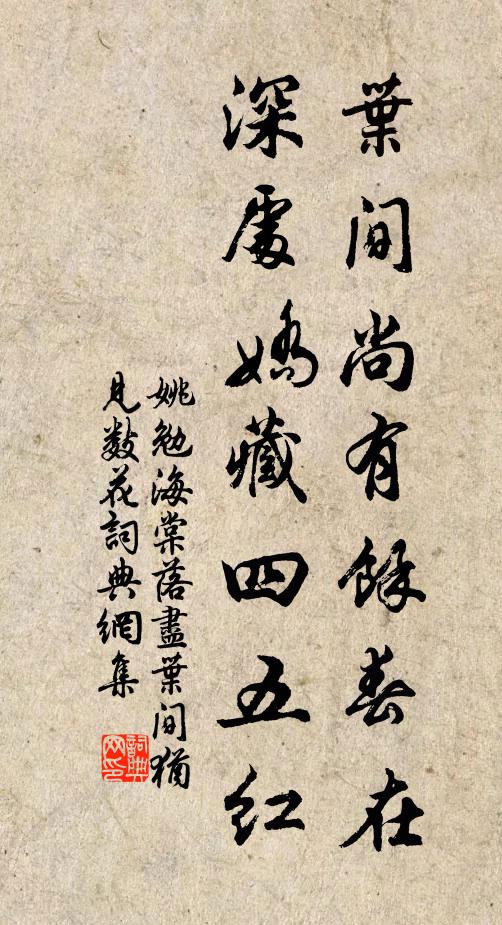 葉間尚有餘春在
深處嬌藏四五红
姚勉海棠落盡葉間猶
見数花詞典網集
詞典
网印